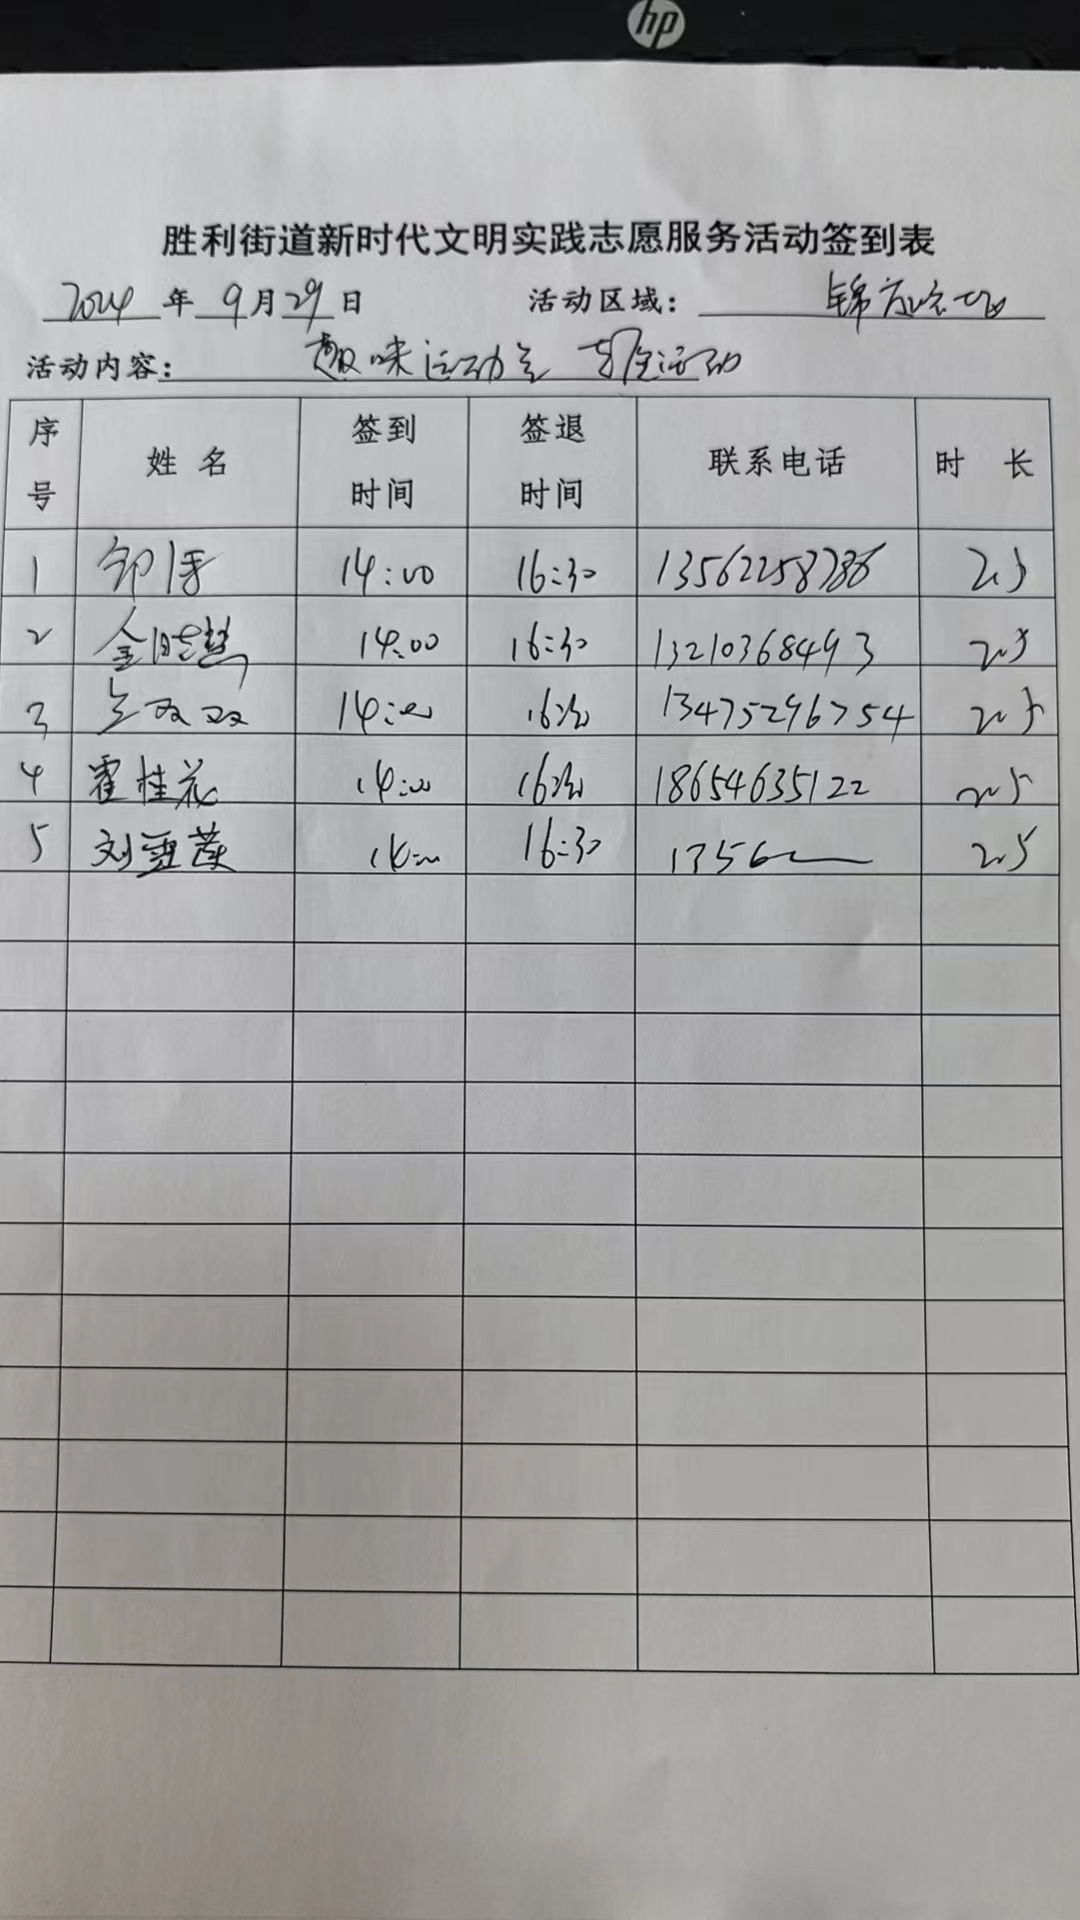 hp
胜利街道新时代文明实践志愿服务活动签到表
2024 年 9 月 29 日 活动区域：锦
活动内容：趣味运动会 运动
序号 姓名 签到时间 签退时间 联系电话 时长
1 14:00 16:30 13562258786 2.5
2 金晓慧 14:00 16:30 13210368493 2.5
3 双双 14:00 16:30 13475296754 2.5
4 霍桂花 14:00 16:30 18654635122 2.5
5 刘 14:00 16:30 1356 2.5